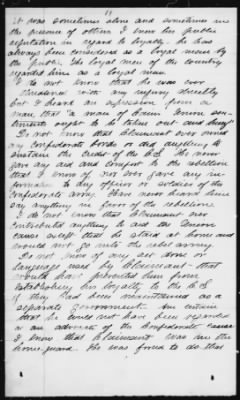 11
it was sometimes alone and sometimes in
the presence of others I know his public
reputation in regard to loyalty. He has
always been considered as a loyal man by
the public. The loyal men of the country
regarded him as a loyal man
I do not know that he was ever
threatened with any injury directly
but I heard an expression from a
man, that "a man of Cains known sen-
timents ought to be taken out and hung"
I do not know that Claimant ever owned
any Confederate bonds or did anything to
sustain the credit of the C.S. He never
gave any aid and comfort to the rebellion
that I know of nor ever gave any in-
formation to any officer or soldier of the
Confederate army. Have never heard him
say anything in favor of the rebellion.
I do not know that Claimant ever
contributed anything to aid the Union
cause except that he staid at home and
would not go into the rebel army.
I do not know of any act done or
language used by Claimant that
would have prevented him from
establishing his loyalty to the C.S.
if they had been maintained as a
separate government. Am certain
that he could not have been regarded
as an advocate of the Confederate cause
I know that Claimant was in the
home guard. He was forced to do that